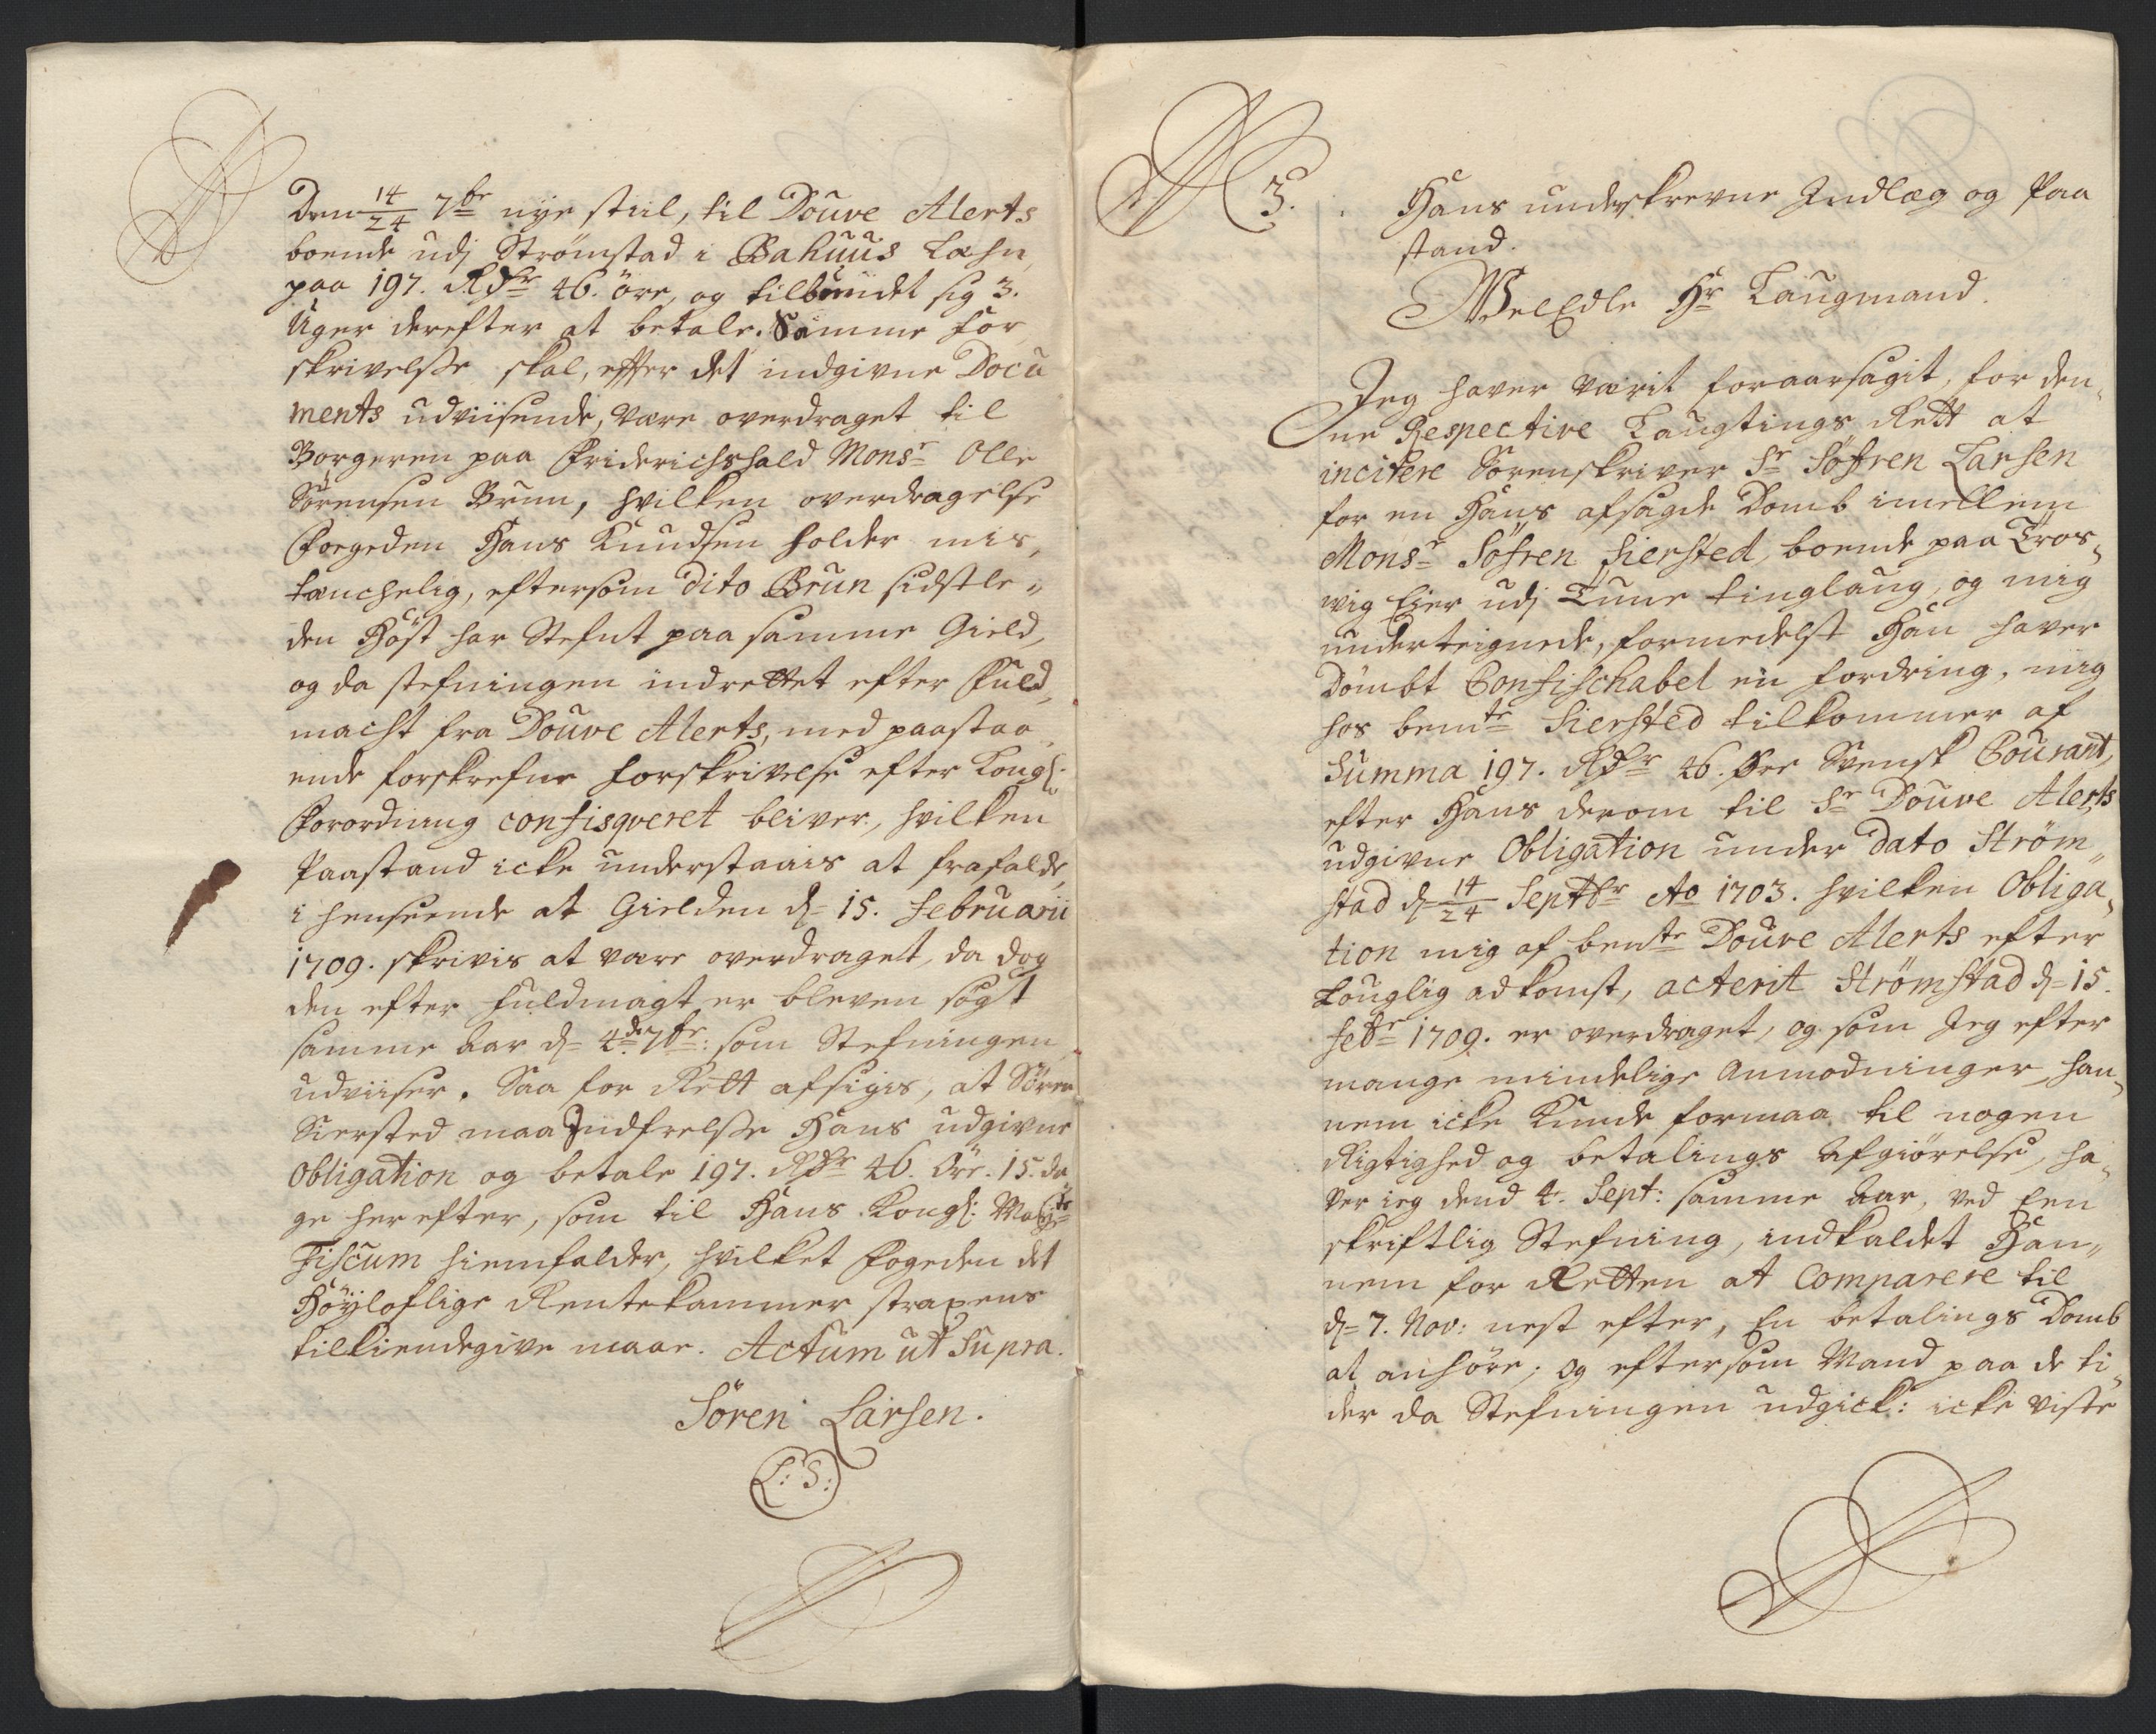 Den 14/24 7br nye stiil, til Douve Alerts
boende udj Strømstad i Bahuus Læhn
paa 197. Rdr 46. öre, og tilbundet sig 3.
Uger derefter at betale. Samme for
skrivelsse skal, efter det indgivne Docu
ments udviisende, være overdraget til
Borgeren paa Friderichshald Monsr Olle
Sörensen Brun, hvilken overdragelse
Foegeden Hans Knudsen holder mis,
tænchelig, eftersom dito Brun sidstle„
den Höst har Stefnt paa samme Gield,
og da stefningen indrettet efter Fuld„
macht fra Douve Alerts, med paastaa„
ende forskrefne forskrivelse efter Kongl:
Forordning confisqveret bliver, hvilken
Paastand icke understaais at frafalde,
i henseende at Gielden d= 15. Februarii
1709. skrivis at være overdraget, da dog
den efter fuldmagt er bleven søgt
samme aar d= 4de 7br: som Stefningen
udviiser. Saa for Rett afsigis, at Sören
Siersted maa Indfrelsse Hans udgivne
Obligation og betale 197. Rdr 46. Öre. 15. da„
ge herefter, som til Hans Kongl: Maijts
Fiscum hiemfalder, hvilket Fogeden det
Höyloflige Rentekammer strapens
tilkiendegive maae. Actum ut Supra.
Sören Larsen.
L: S:
3. Hans underskrevne Indlæg og Paa
stand.
WelEdle Hr Laugmand.
Jeg haver værit foraarsagit, for den„
ne Respective Laugtings Rett at
incitere Sorenskriver Sr Söfren Larsen
for en Hans afsagde Domb imellem
Monsr Söfren Siersted, boende paa Tros„
wig Eier udj Tune tinglaug, og mig
underteignede, formedelst Han haver
Dömbt Confischabel en fordring, mig
hos bemte Siersted tilkommer af
Summa 197. Rdr 46. Öre Svensk Courant,
efter Hans derom til Sr Douve Alerts
udgivne Obligation under Dato Ström„
stad d= 14/24 Septbr Ao 1703. hvilken Obliga„
tion mig af bemte Douve Alerts efter
Louglig adkomst, acterit Strömstad d= 15.
Febr 1709. er overdraget, og som Jeg efter
mange mindelige Anmodninger, han„
nem icke kunde formaa til nogen
Rigtighed og betalings Afgiörelse, ha„
ver ieg dend 4. Sept: samme aar, ved Een
skriftlig Stefning, indkaldet Han„
nem for Retten at Comparere til
d= 7. Nov: nest efter, En betalings Domb
at anhöre; og eftersom Mand paa de ti„
der da Stefningen udgick: icke viste